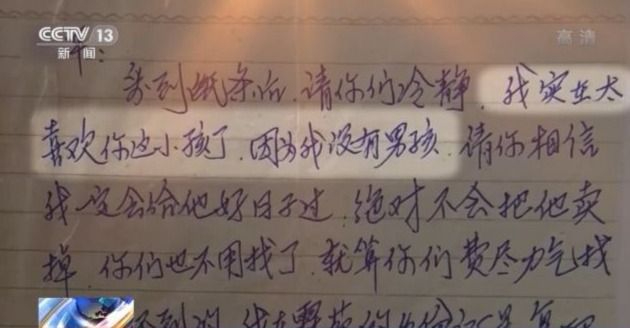 CCTV 13
新闻
高清
到纸条后,请你们冷静,我实在太
喜欢你这小孩了,因为我没有男孩,请你相信
我一定会给他好日子过,绝对不会把他卖
掉,你们也不用找了,就算你们费尽力气找